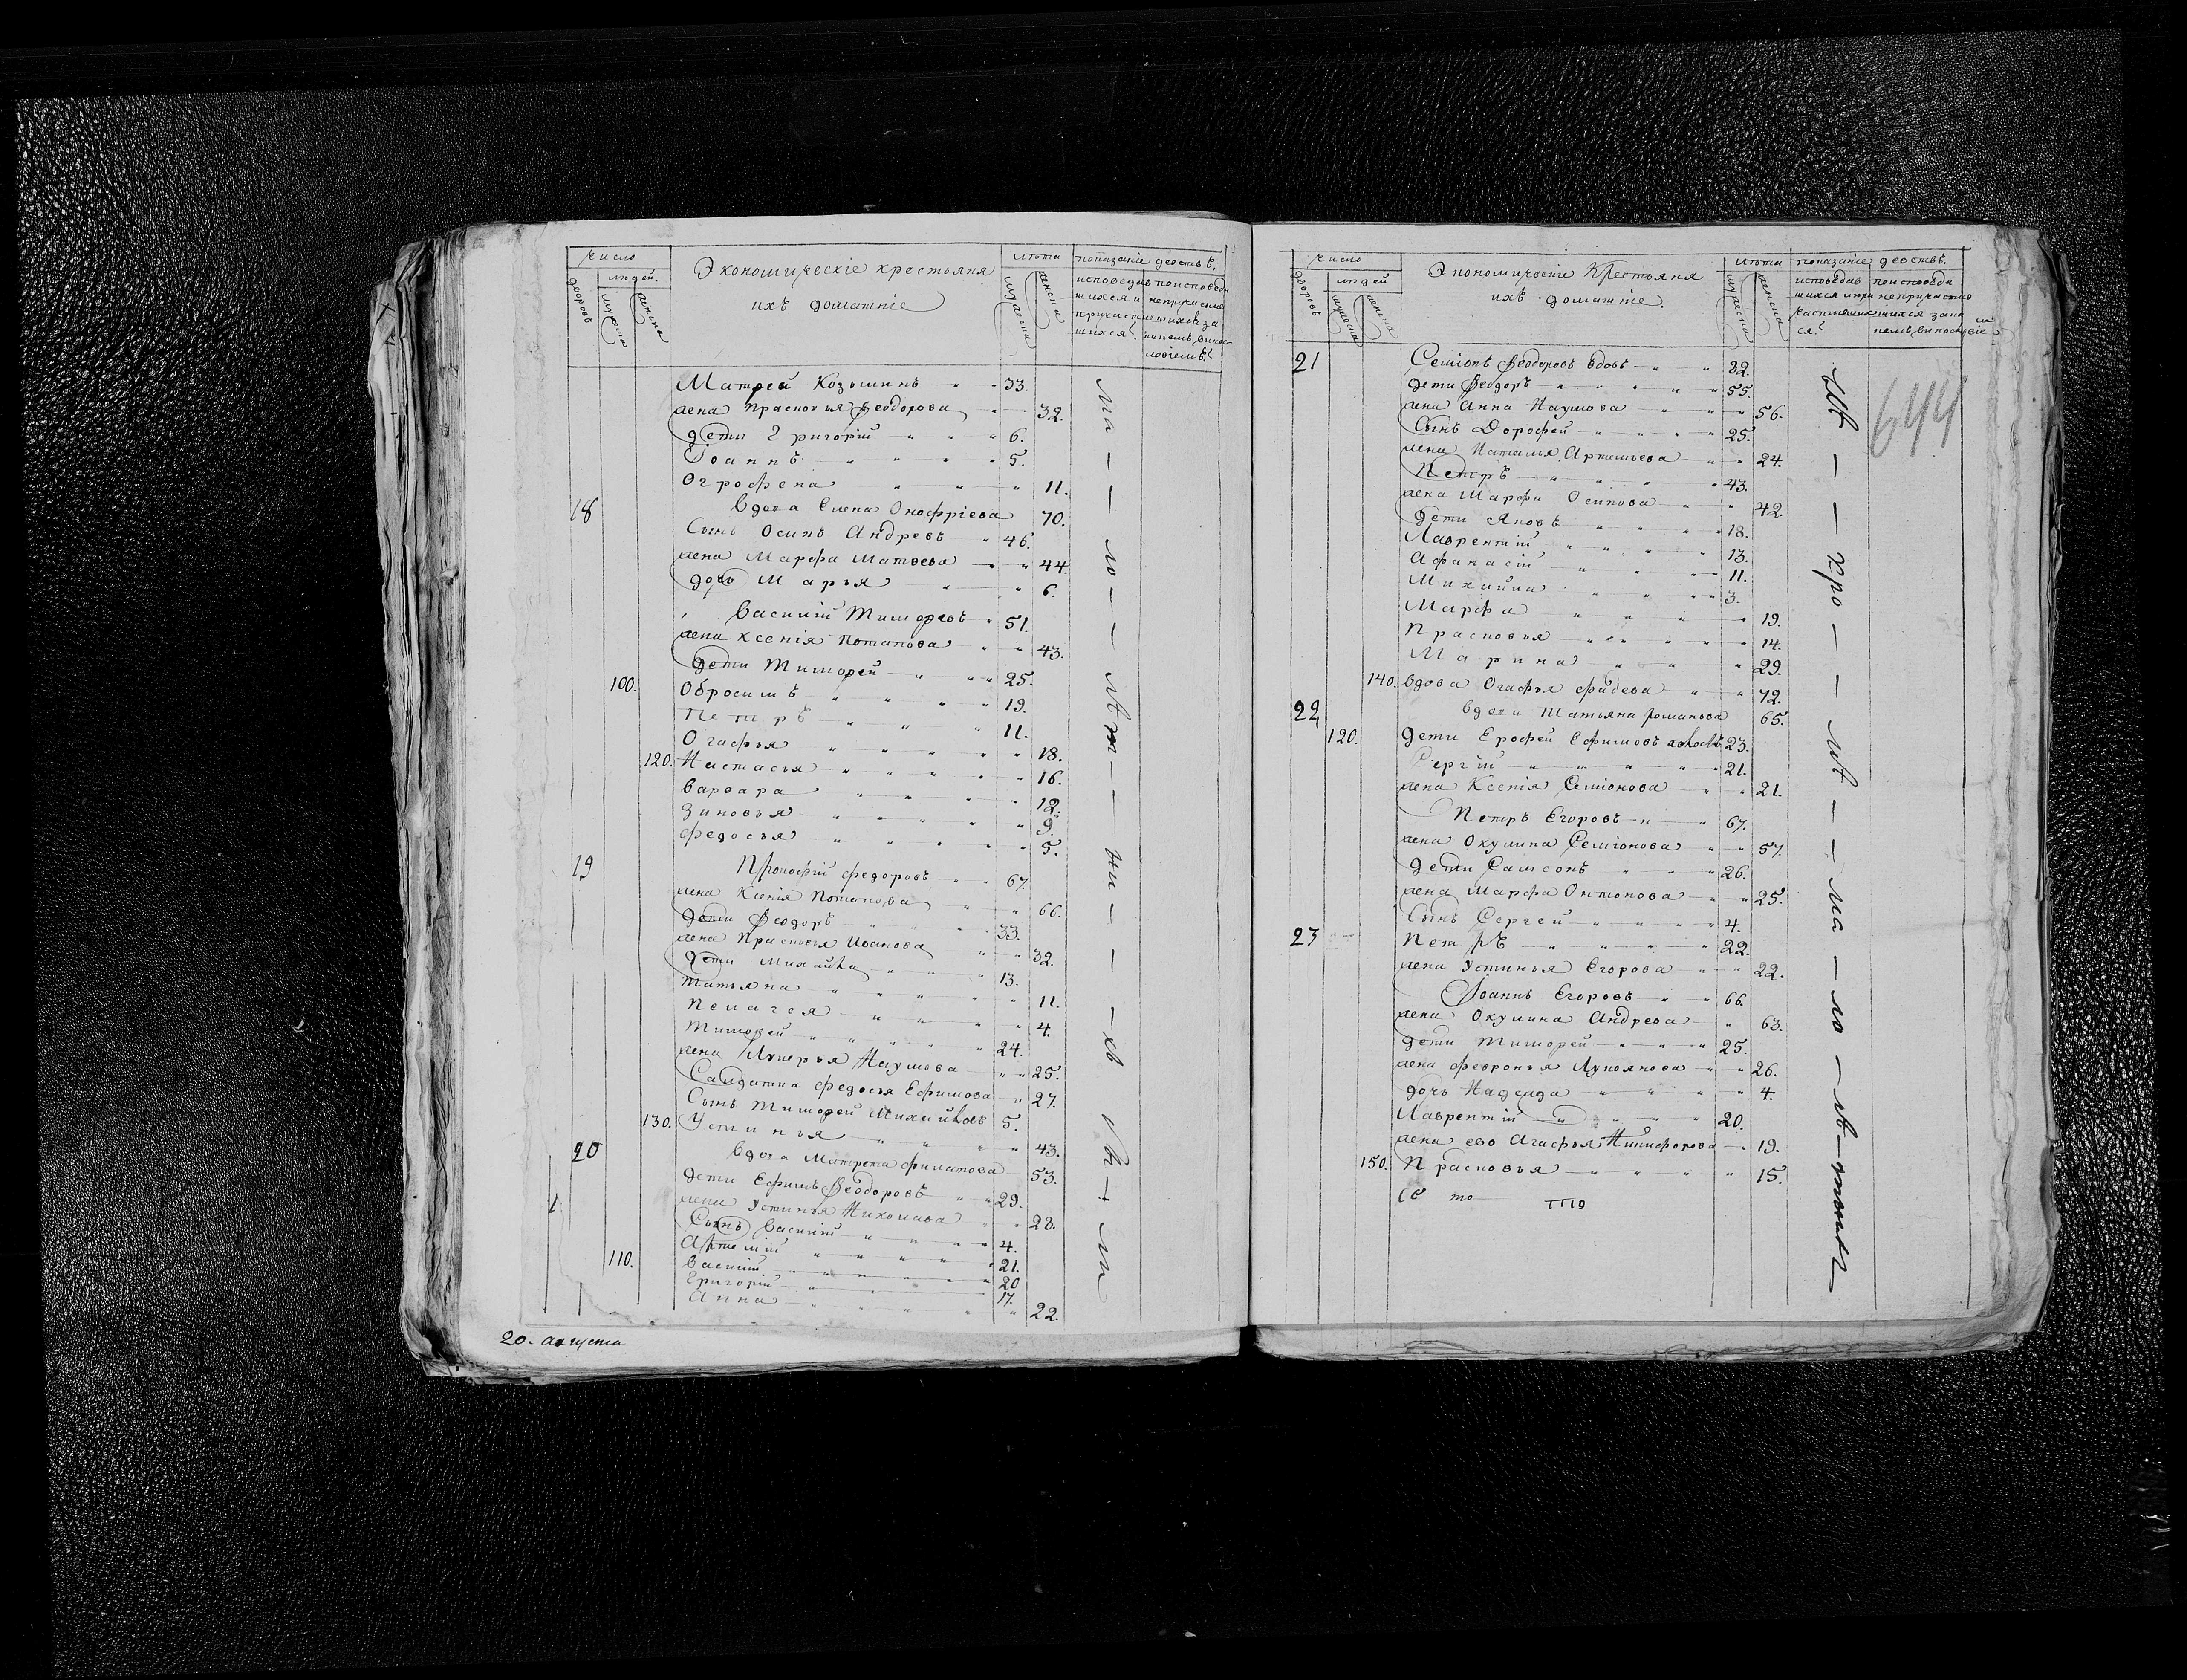 число
людей
дворовъ
мужеска
женска
Экономическіе крестьяня
ихъ домашніе
лѣта
мужеска
женска
показаніе действъ
исповедав
шихся и
причасти
шихся
поисповеди
непричасив
Матфей Козьминъ 33.
жена Прасковья Ѳеодорова 32.
дети Григорій 6.
Іоаннъ 5.
Огрофена 11.
18 Вдова Елена Онофріева 70.
Сынъ Осипъ Андревъ 46.
жена Марфа Матвева 44.
дочь Марья 6.
Василій Тимофеевъ 51.
жена Ксенія Потапова 43.
дети Тимофей 25.
100. Обросимъ 19.
Петръ 11.
Огафья 18.
120. Настасья 16.
Варвара 12.
Зиновья 9.
Федосья 5.
19 Прокофій Федоровъ 67.
жена Ксенія Потапова 66.
дети Ѳеодоръ 33.
жена Прасковья Иванова 32.
дети Михайла 13.
Татьяна 11.
Пелагея 4.
Тимофей 24.
жена Лукерья Наумова 25.
Салдатка Федосья Ефимова 27.
Сынъ Тимофей Михайловъ 5.
130. Устинья 43.
20 Вдова Матрена Филатова 53.
дети Ефимъ Ѳеодоровъ 29.
жена Устинья Николаева 28.
Сынъ Василій 4.
Артемій 21.
110. Василій 20
Григорій 17.
Анна 22.
ма — — ло — — лѣт — — ни — — хъ
20. августа
число
людей
дворовъ
мужеска
женска
Экономическіе Крестьяня
ихъ домашніе.
лѣта
мужеска
женска
показаніе действъ.
исповедав
шихся и при
частивших
ся
поисповеди
непричастив
шихся
644
21 Семіонъ Ѳеодоровъ вдовъ 82.
дети Ѳеодоръ 55.
жена Анна Наумова 56.
Сынъ Дорофей 25.
жена Наталья Артемьева 24.
Петръ 43.
жена Марфа Осипова 42.
дети Яковъ 18.
Лаврентій 13.
Афанасій 11.
Михайла 3.
Марфа 19.
Прасковья 14.
Марина 29.
140. вдова Огафья Фадеева 72.
22 вдова Татьяна Романова 65.
120. дети Ерофей Ефимовъ холостъ 23.
Сергій 21.
жена Ксенія Семіонова 21.
Петръ Егоровъ 67.
жена Окулина Семіонова 57.
дети Самсонъ 26.
жена Марфа Онтонова 25.
Сынъ Сергей 4.
23 Петръ 22.
жена Устинья Егорова 22.
Іоаннъ Егоровъ 66.
жена Окулина Андрева 63.
дети Тимофей 25.
жена Февронья Лукоянова 26.
дочь Надежда 4.
Лаврентій 20.
жена ево Агафья Никифорова 19.
150. Прасковья 15.
— — кро — — — лѣ — — ма — ло — лѣ